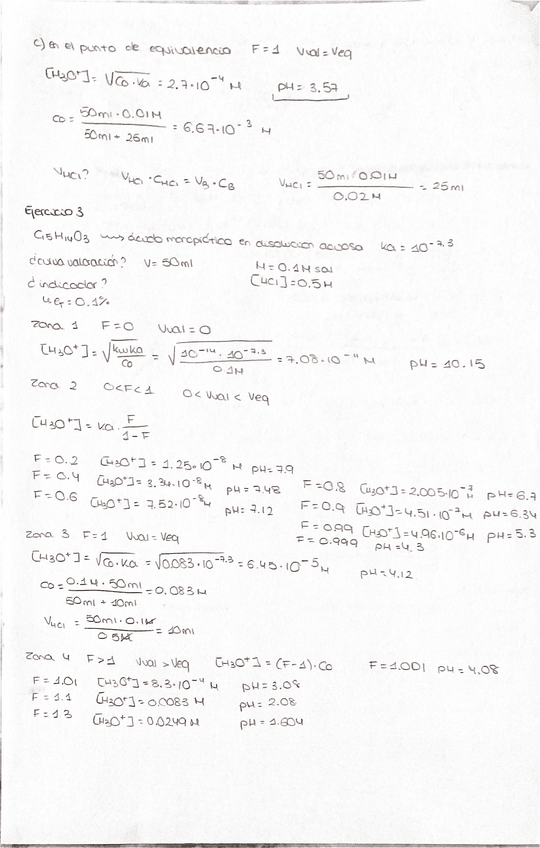 c) en el punto de equivalencia F=1 Vval=Veq
[H3O+]= √Co·Ka = 2.7·10⁻⁴ M pH= 3.57
co= 50ml·0.01M / 50ml+25ml = 6.67·10⁻³ M
VHCl? VHCl·CHCl = VB·CB VHCl= 50ml·0.01M / 0.02M = 25ml
Ejercicio 3
C15H14O3 ácido monoprótico en disolución acuosa Ka = 10⁻⁷·³
¿curva valoración? V=50ml M=0.1M sal
¿indicador? [HCl]=0.5M
Er=0.1%
Zona 1 F=0 Vval=0
[H3O+]= √Kw·Ka/Co = √10⁻¹⁴·10⁻⁷·³/0.1M = 7.08·10⁻¹¹ M pH= 10.15
Zona 2 0<F<1 0<Vval<Veq
[H3O+]= Ka· F/1-F
F=0.2 [H3O+]= 1.25·10⁻⁸ M pH=7.9
F=0.4 [H3O+]= 3.34·10⁻⁸ M pH=7.48
F=0.6 [H3O+]= 7.52·10⁻⁸ M pH=7.12
F=0.8 [H3O+]=2.005·10⁻⁷ M pH=6.7
F=0.9 [H3O+]=4.51·10⁻⁷ M pH=6.34
F=0.99 [H3O+]=4.96·10⁻⁶ M pH=5.3
F=0.999 pH=4.3
Zona 3 F=1 Vval=Veq
[H3O+]= √Co·Ka = √0.083·10⁻⁷·³ = 6.45·10⁻⁵ M pH=4.12
co= 0.1M·50ml / 50ml+10ml = 0.083M
VHCl = 50ml·0.1M / 0.5M = 10ml
Zona 4 F>1 Vval>Veq [H3O+]=(F-1)·Co F=1.001 pH=4.08
F=1.01 [H3O+]=8.3·10⁻⁴ M pH=3.08
F=1.1 [H3O+]=0.0083 M pH=2.08
F=1.3 [H3O+]=0.0249 M pH=1.604